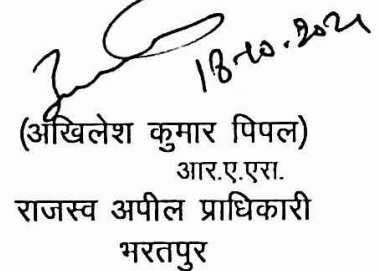 18-10-2021
(अखिलेश कुमार पिपल)
आर.ए.एस.
राजस्व अपील प्राधिकारी
भरतपुर